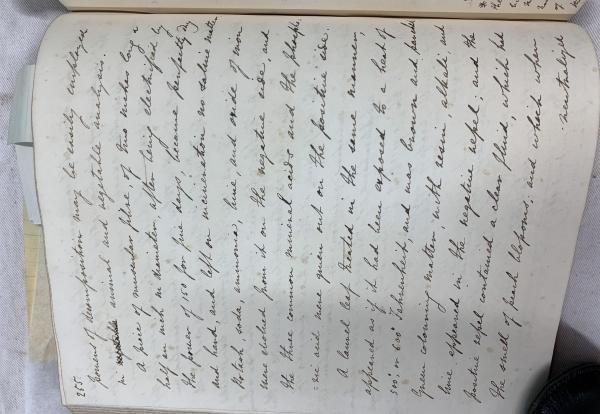 255.
powers of decomposition may be easily employed
in animal and vegetable analysis.
A piece of muscular fibre, of two inches long &
half an inch in diameter, after being electrified by
the power of 150 for five days; became perfectly dry
and hard and left on incineration no saline matter
Potash, soda, ammonia, lime, and oxide of iron
were evolved from it on the negative side, and
the three common mineral acids and the phosphoric
acid were given out on the positive side.
A laurel leaf treated in the same manner
appeared as if it had been exposed to a heat of
500° or 600° Fahrenheit, and was brown and parched
Green colouring matter, with resin, alkali, and
lime appeared in the negative vessel; and the
positive vessel contained a clear fluid, which had
the smell of peach blossoms; and which when
neutralized